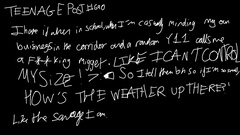 TEENAGE POST #600
I hate it when in school, when I'm casually minding my own
business, in the corridor and a random Y11 calls me
a F***ing midget. LIKE I CAN'T CONTROL
MY SIZE! >:( So I tell them bh so if I'm so small,
HOW'S THE WEATHER UP THERE?!
Like the savage I am.